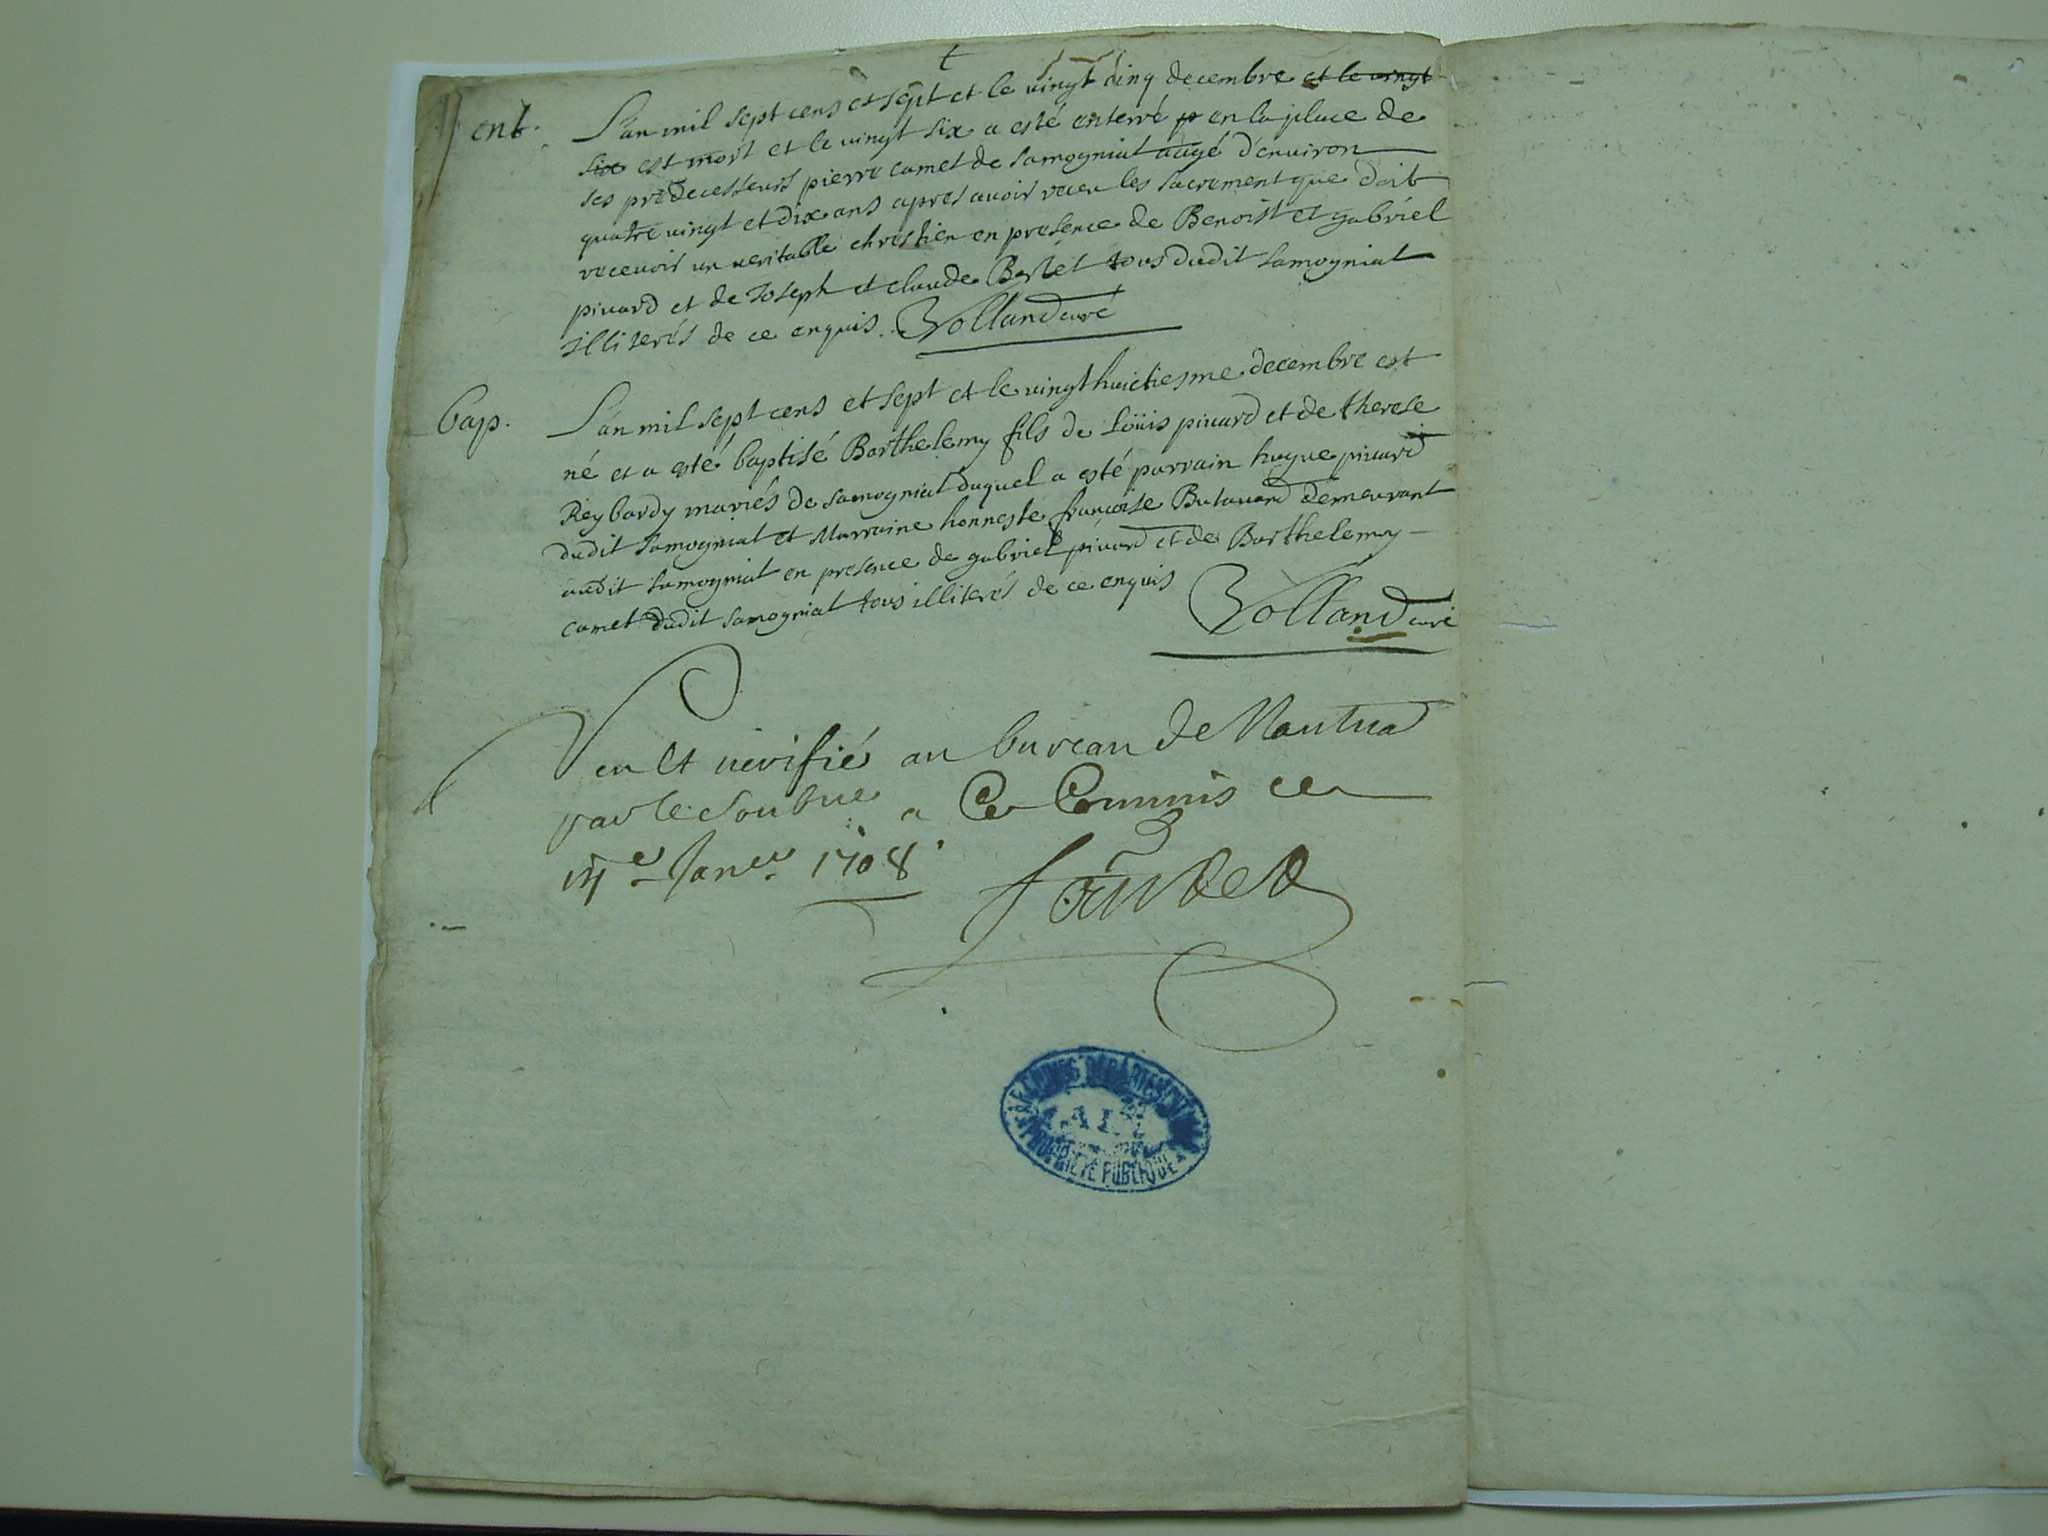 ent.
L'an mil sept cens et sept et le vingt cinq decembre et le vingt
six est mort et le vingt six a esté enterré en la place de
ses predecesseurs pierre camet de samogniat aagé d'environ
quatre vingt et dix ans apres avoir receu les sacrement que doit
recevoir un veritable chrestien en presence de Benoist et gabriel
pivard et de Joseph et claude tous dudit samogniat
illiterés de ce enquis. Volland curé
bap.
L'an mil sept cens et sept et le vingt huictiesme decembre est
né et a esté baptisé Barthelemy fils de Loüis pivard et de therese
Reybardy mariés de samogniat duquel a esté parrain hugue pivard
dudit samogniat et Marraine honneste françoise Butavand demeurant
audit samogniat en presence de gabriel pivard et de Barthelemy
camet dudit samogniat tous illiterés de ce enquis Volland curé
Veu et verifié au bureau de Nantua
par le Commis ce
14e Janer 1708
ARCHIVES DÉPARTEMENTALES
AIN
PROPRIÉTÉ PUBLIQUE